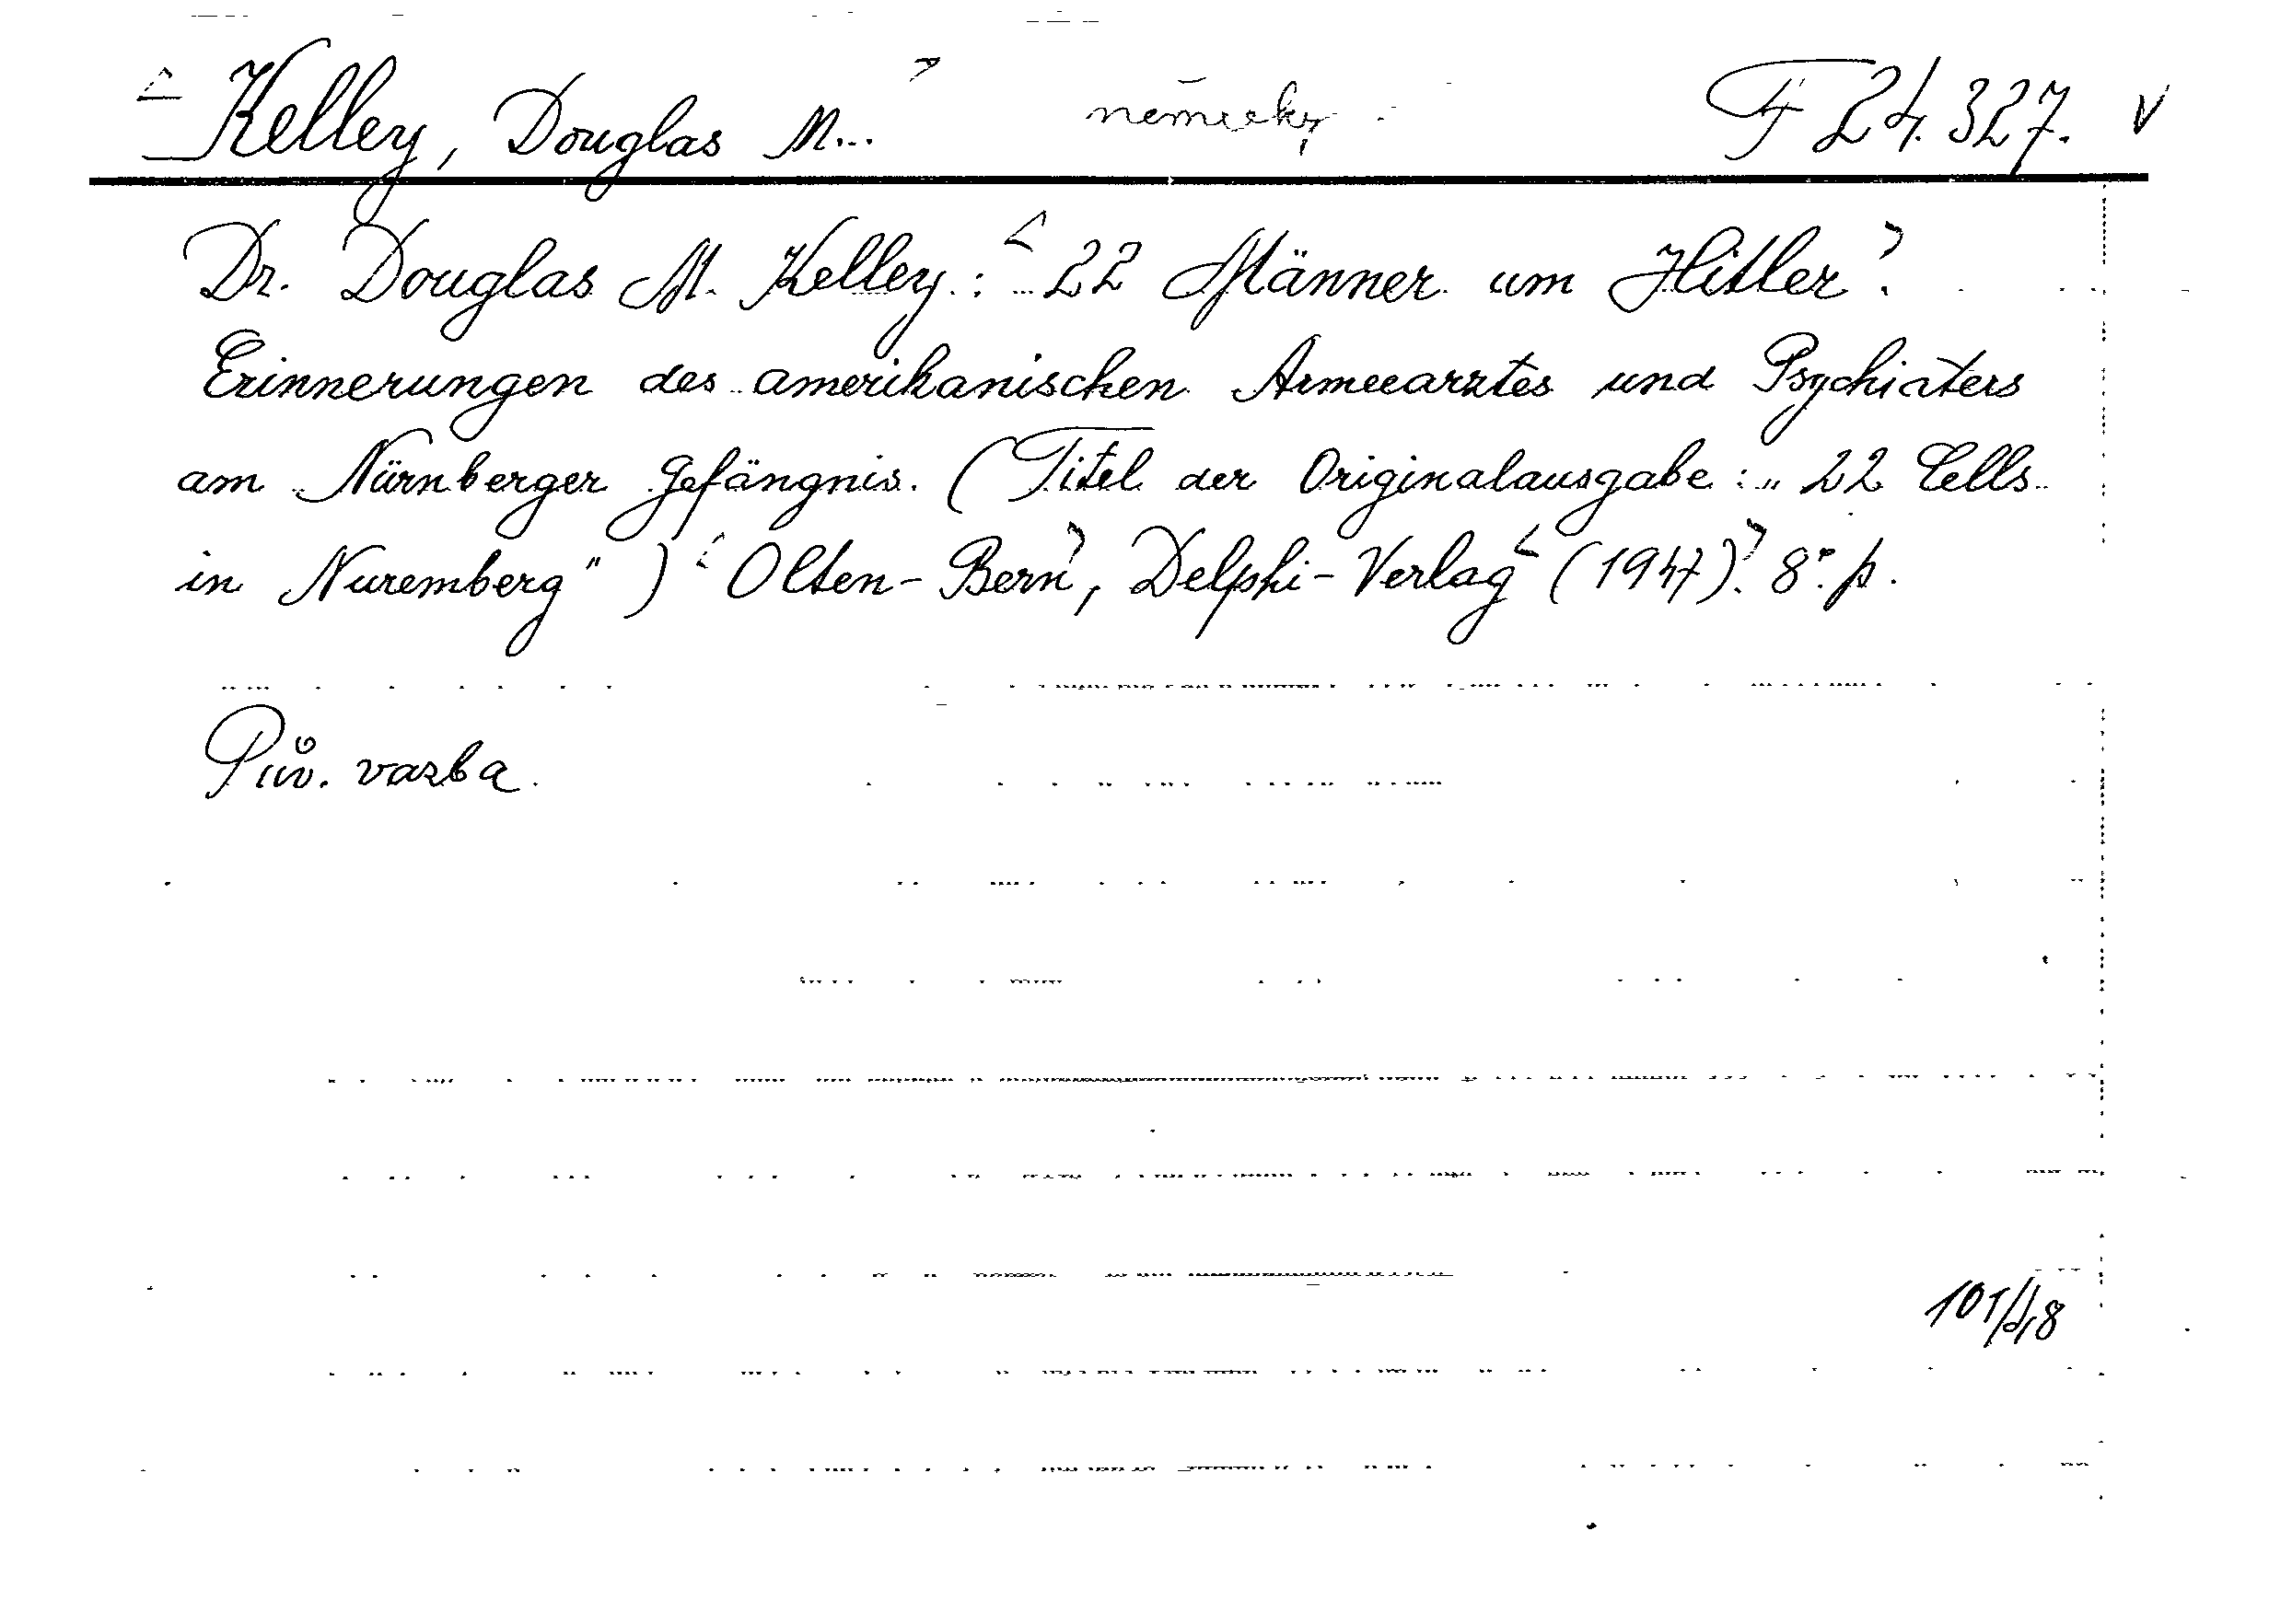 Kelley, Douglas M... německy F 24.327. v
Dr. Douglas M. Kelley: 22 Männer um Hitler.
Erinnerungen des amerikanischen Armeearztes und Psychiaters
am Nürnberger Gefängnis. (Titel der Originalausgabe: „22 Cells
in Nuremberg") Olten-Bern, Delphi-Verlag (1947). 8°. p.
Pův. vazba.